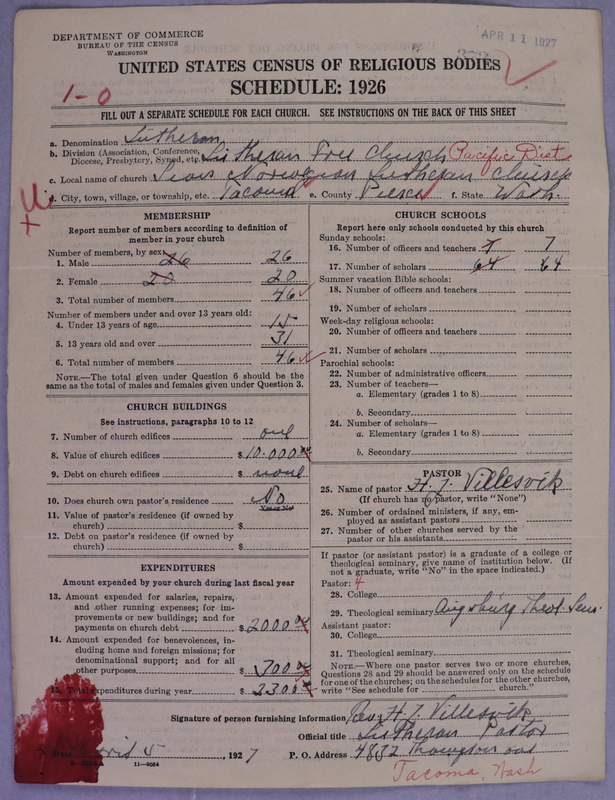 DEPARTMENT OF COMMERCE
BUREAU OF THE CENSUS
WASHINGTON
APR 11 1927
UNITED STATES CENSUS OF RELIGIOUS BODIES
SCHEDULE: 1926
1-0
FILL OUT A SEPARATE SCHEDULE FOR EACH CHURCH. SEE INSTRUCTIONS ON THE BACK OF THIS SHEET
a. Denomination Lutheran
b. Division (Association, Conference, Diocese, Presbytery, Synod, etc. Lutheran Free Church Pacific Dist
c. Local name of church Norwegian Lutheran Church
d. City, town, village, or township, etc. Tacoma e. County Pierce f. State Wash.
MEMBERSHIP
Report number of members according to definition of member in your church
Number of members, by sex:
1. Male 26 26
2. Female 20 20
3. Total number of members 46
Number of members under and over 13 years old:
4. Under 13 years of age 15
5. 13 years old and over 31
6. Total number of members 46
NOTE.—The total given under Question 6 should be the same as the total of males and females given under Question 3.
CHURCH BUILDINGS
See instructions, paragraphs 10 to 12
7. Number of church edifices one
8. Value of church edifices $ 10.000.00
9. Debt on church edifices $ none
10. Does church own pastor's residence No
Yes or No
11. Value of pastor's residence (if owned by church) $
12. Debt on pastor's residence (if owned by church) $
EXPENDITURES
Amount expended by your church during last fiscal year
13. Amount expended for salaries, repairs, and other running expenses; for improvements or new buildings; and for payments on church debt $ 2000.00
14. Amount expended for benevolences, including home and foreign missions; for denominational support; and for all other purposes $ 300.00
15. Total expenditures during year $ 2300.00
CHURCH SCHOOLS
Report here only schools conducted by this church
Sunday schools:
16. Number of officers and teachers 7 7
17. Number of scholars 64 64
Summer vacation Bible schools:
18. Number of officers and teachers
19. Number of scholars
Week-day religious schools:
20. Number of officers and teachers
21. Number of scholars
Parochial schools:
22. Number of administrative officers
23. Number of teachers—
a. Elementary (grades 1 to 8)
b. Secondary
24. Number of scholars—
a. Elementary (grades 1 to 8)
b. Secondary
PASTOR
25. Name of pastor H. J. Villesvik
(If church has no pastor, write "None")
26. Number of ordained ministers, if any, employed as assistant pastors
27. Number of other churches served by the pastor or his assistants
If pastor (or assistant pastor) is a graduate of a college or theological seminary, give name of institution below. (If not a graduate, write "No" in the space indicated.)
Pastor: 4
28. College
29. Theological seminary Augsburg Theol. Sem.
Assistant pastor:
30. College
31. Theological seminary
NOTE.—Where one pastor serves two or more churches, Questions 28 and 29 should be answered only on the schedule for one of the churches; on the schedules for the other churches, write "See schedule for church."
Signature of person furnishing information Rev. H. J. Villesvik
Official title Lutheran Pastor
5, 1927 P. O. Address 4832 Thompson ave
Tacoma, Wash
11-9064